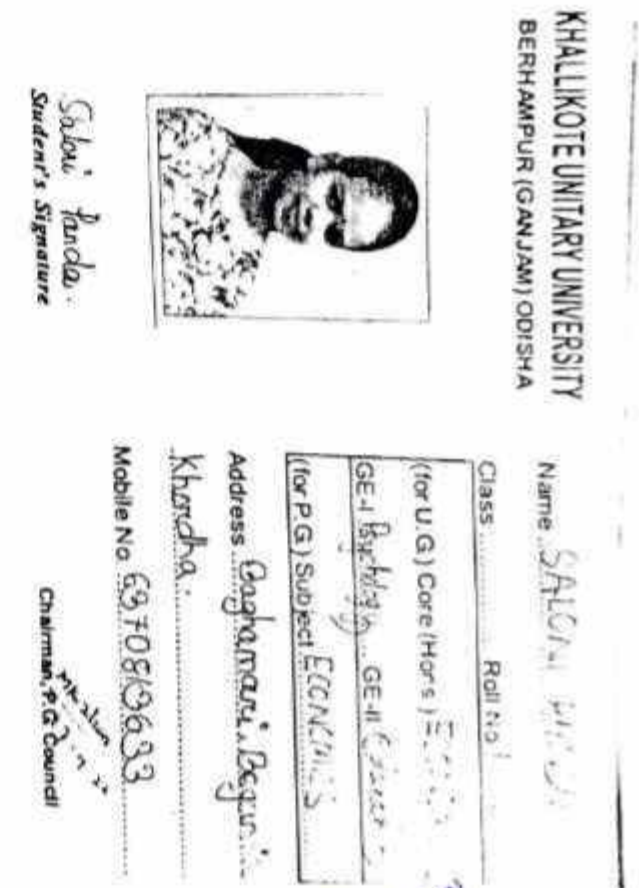 KHALLIKOTE UNITARY UNIVERSITY
BERHAMPUR (GANJAM) ODISHA
Saloni Panda.
Student's Signature
Name SALONI
Class Roll No
(for U.G) Core (Hons)
GE-I Psychology GE-II
(for P.G) Subject ECONOMICS
Address Baghamari, 
Khordha.
Mobile No
Chairman, P.G Council